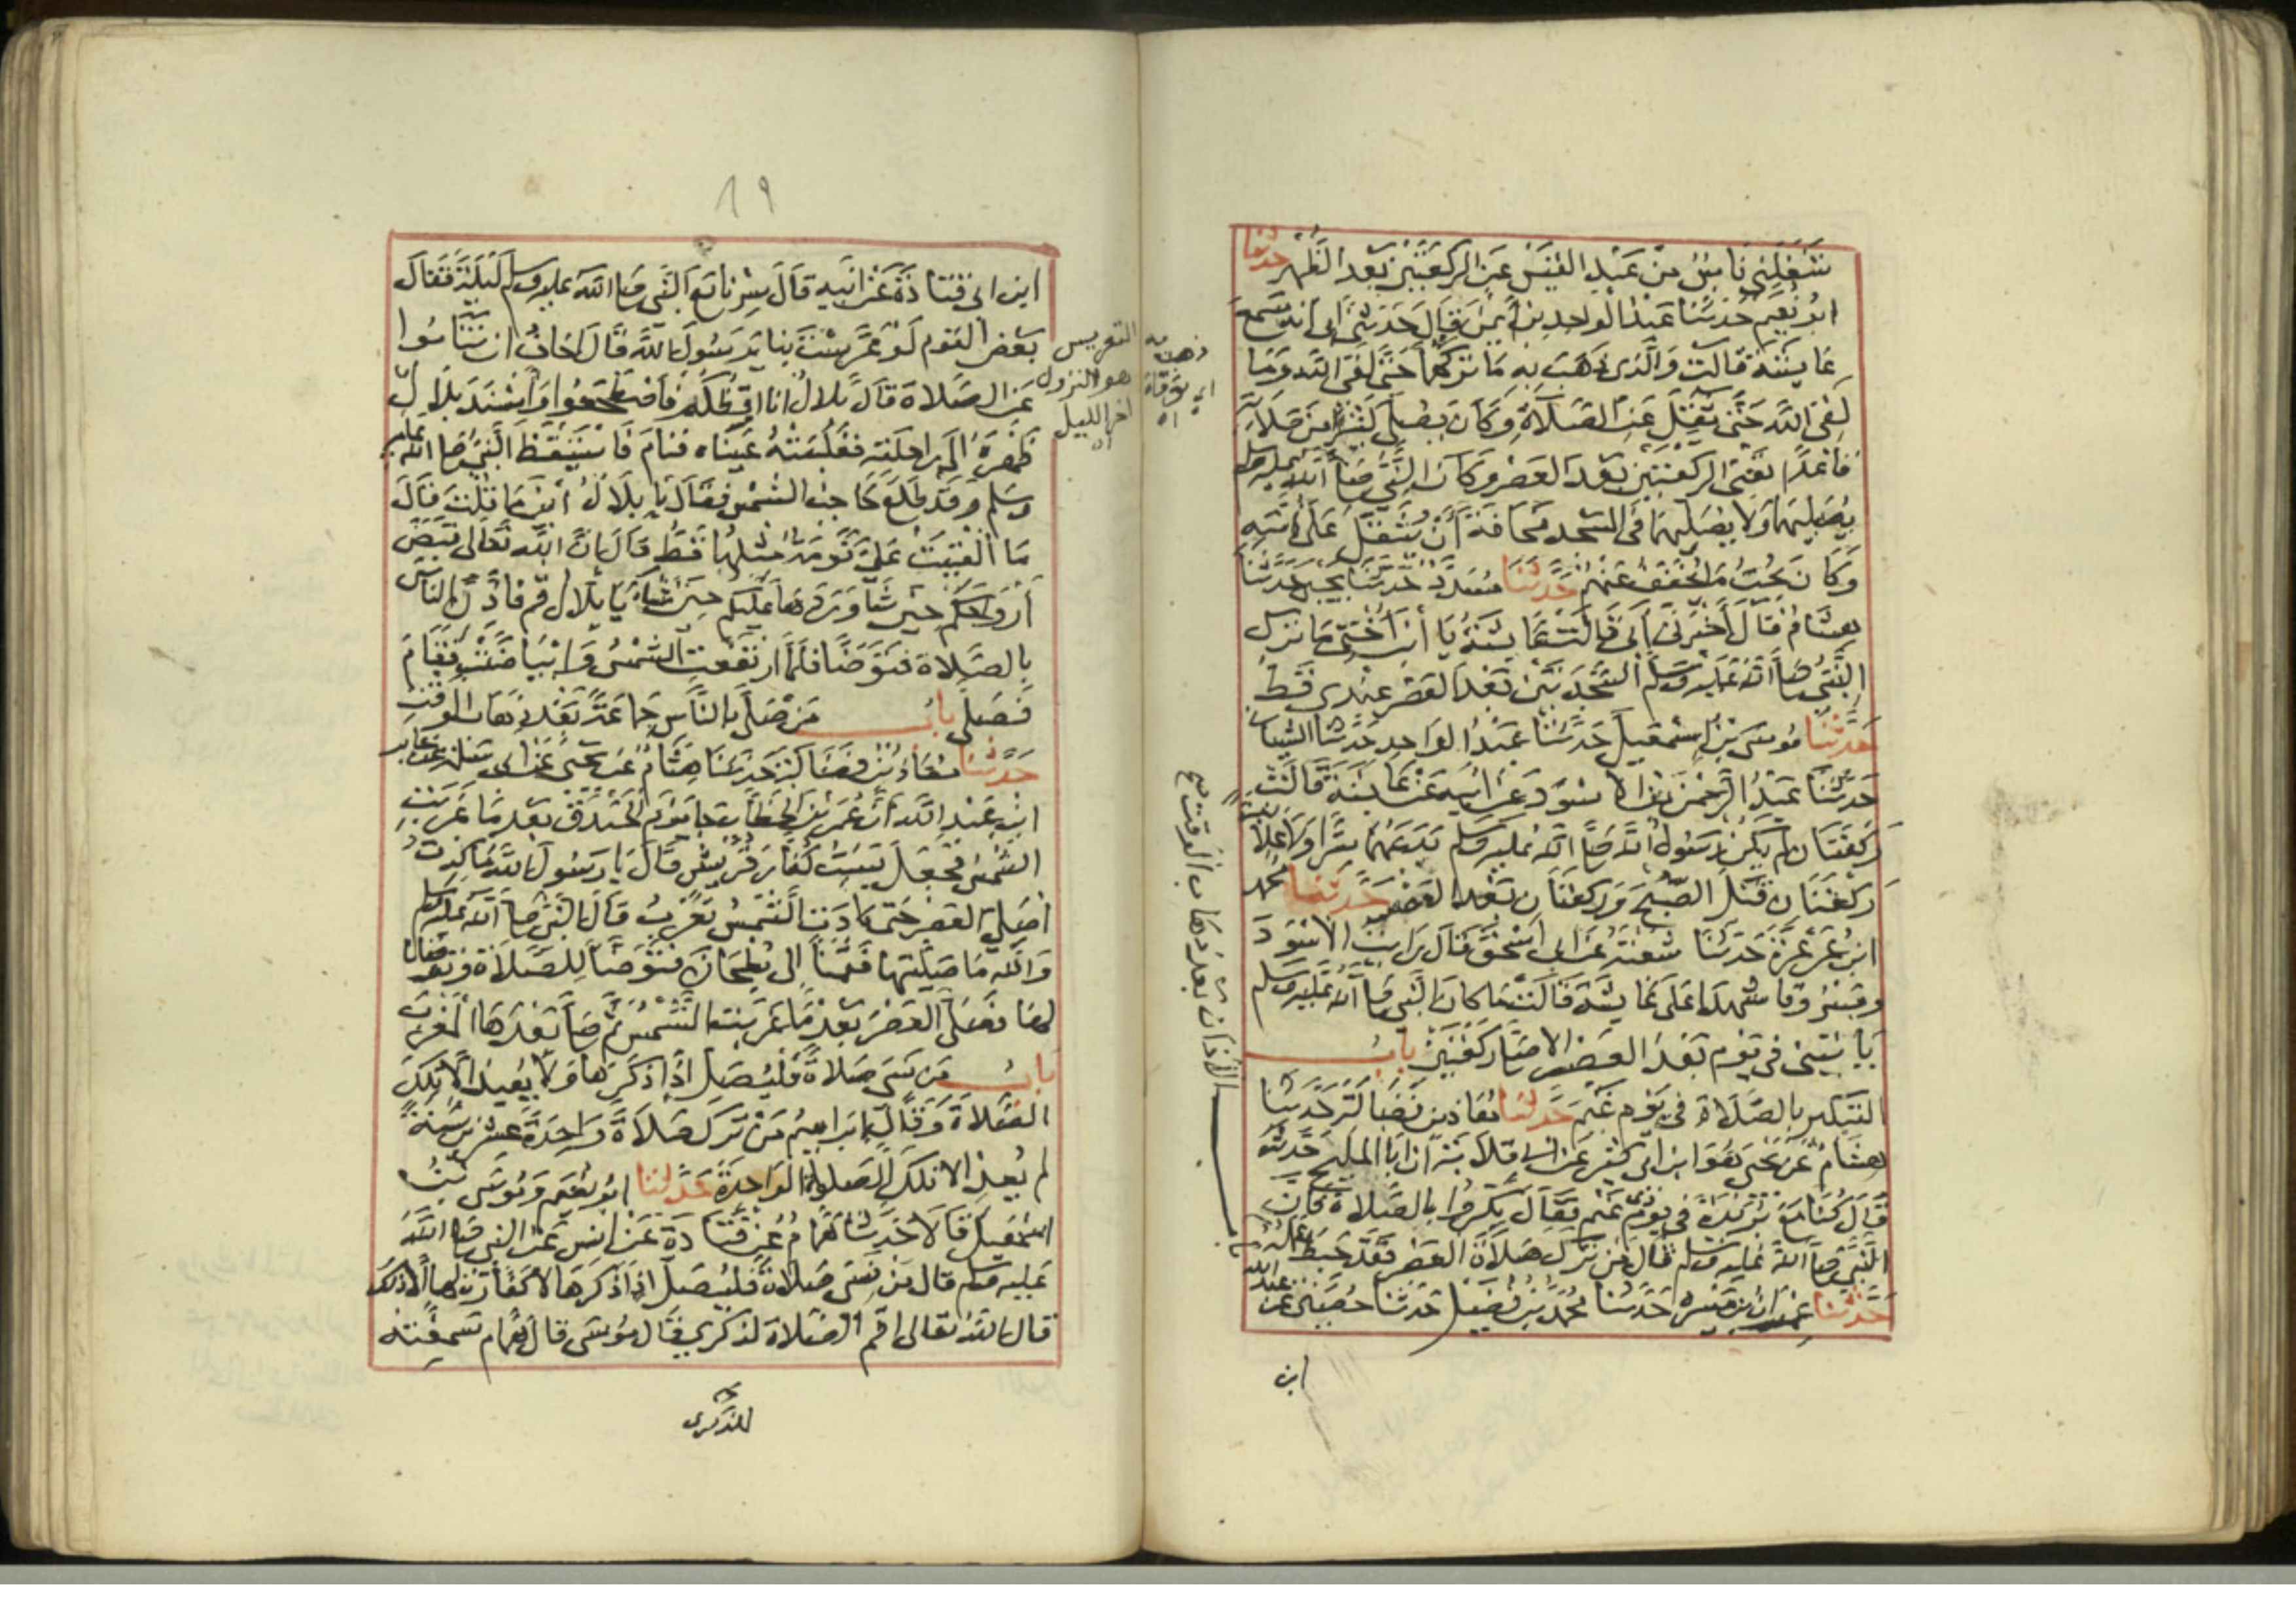 شغلني ناس من عبد القيس عن الركعتين بعد الظهر حدثنا
ابو نعيم حدثنا عبد الواحد بن ايمن قال حدثني ابي انه سمع
عايشة قالت والذي ذهب به ما تركهما حتى لقي الله وما
لقي الله حتى ثقل عن الصلاة وكان يصلي كثيرا من صلاته
قاعدا تعني الركعتين بعد العصر وكان النبي صلى الله عليه وسلم
يصليهما ولا يصليهما في المسجد مخافة ان يثقل على امته
وكان يحب ما يخفف عنهم حدثنا مسدد حدثنا يحيى حدثنا
هشام قال اخبرني ابي قالت عايشة يا ابن اختي ما ترك
النبي صلى الله عليه وسلم السجدتين بعد العصر عندي قط
حدثنا موسى بن اسمعيل حدثنا عبد الواحد حدثنا الشيباني
حدثنا عبد الرحمن بن الاسود عن ابيه عن عايشة قالت
ركعتان لم يكن رسول الله صلى الله عليه وسلم يدعهما سرا ولا علانية
ركعتان قبل الصبح وركعتان بعد العصر حدثنا محمد
ابن عرعرة حدثنا شعبة عن ابي اسحق قال رايت الاسود
ومسروقا شهدا على عايشة قالت ما كان النبي صلى الله عليه وسلم
ياتيني في يوم بعد العصر الا صلى ركعتين باب
التبكير بالصلاة في يوم غيم حدثنا معاذ بن فضالة حدثنا
هشام عن يحيى هو ابن ابي كثير عن ابي قلابة ان ابا المليح حدثه
قال كنا مع بريدة في يوم ذي غيم فقال بكروا بالصلاة فان
النبي صلى الله عليه وسلم قال من ترك صلاة العصر فقد حبط عمله
حدثنا عمران بن ميسرة حدثنا محمد بن فضيل حدثنا حصين عن عبد الله
ابن
باب الأذان بعد ذهاب الوقت صح
ذهب به
اي توفاه
اه
١٩
ابن ابي قتادة عن ابيه قال سرنا مع النبي صلى الله عليه وسلم ليلة فقال
بعض القوم لو عرست بنا يا رسول الله قال اخاف ان تناموا
عن الصلاة قال بلال انا اوقظكم فاضطجعوا واسند بلال
ظهره الى راحلته فغلبته عيناه فنام فاستيقظ النبي صلى الله عليه
وسلم وقد طلع حاجب الشمس فقال يا بلال اين ما قلت قال
ما القيت علي نومة مثلها قط قال ان الله تعالى قبض
ارواحكم حين شا وردها عليكم حين شاء يا بلال قم فاذن بالناس
بالصلاة فتوضا فلما ارتفعت الشمس وابياضت فقام
فصلى باب من صلى بالناس جماعة بعد ذهاب الوقت
حدثنا معاذ بن فضالة حدثنا هشام عن يحيى عن ابي سلمة عن جابر
ابن عبد الله ان عمر بن الخطاب جا يوم الخندق بعد ما غربت
الشمس فجعل يسب كفار قريش قال يا رسول الله ما كدت
اصلي العصر حتى كادت الشمس تغرب قال النبي صلى الله عليه وسلم
والله ما صليتها فقمنا الى بطحان فتوضا للصلاة وتوضانا
لها فصلى العصر بعد ما غربت الشمس ثم صلى بعدها المغرب
باب من نسي صلاة فليصل اذا ذكرها ولا يعيد الا تلك
الصلاة وقال ابراهيم من ترك صلاة واحدة عشرين سنة
لم يعد الا تلك الصلوة الواحدة حدثنا ابو نعيم وموسى بن
اسمعيل قالا حدثنا همام عن قتادة عن انس عن النبي صلى الله
عليه وسلم قال من نسي صلاة فليصل اذا ذكرها لا كفارة لها الا ذلك
قال الله تعالى اقم الصلاة لذكري قال موسى قال همام سمعته
للذكرى
التعريس
هو النزول
اخر الليل
اه